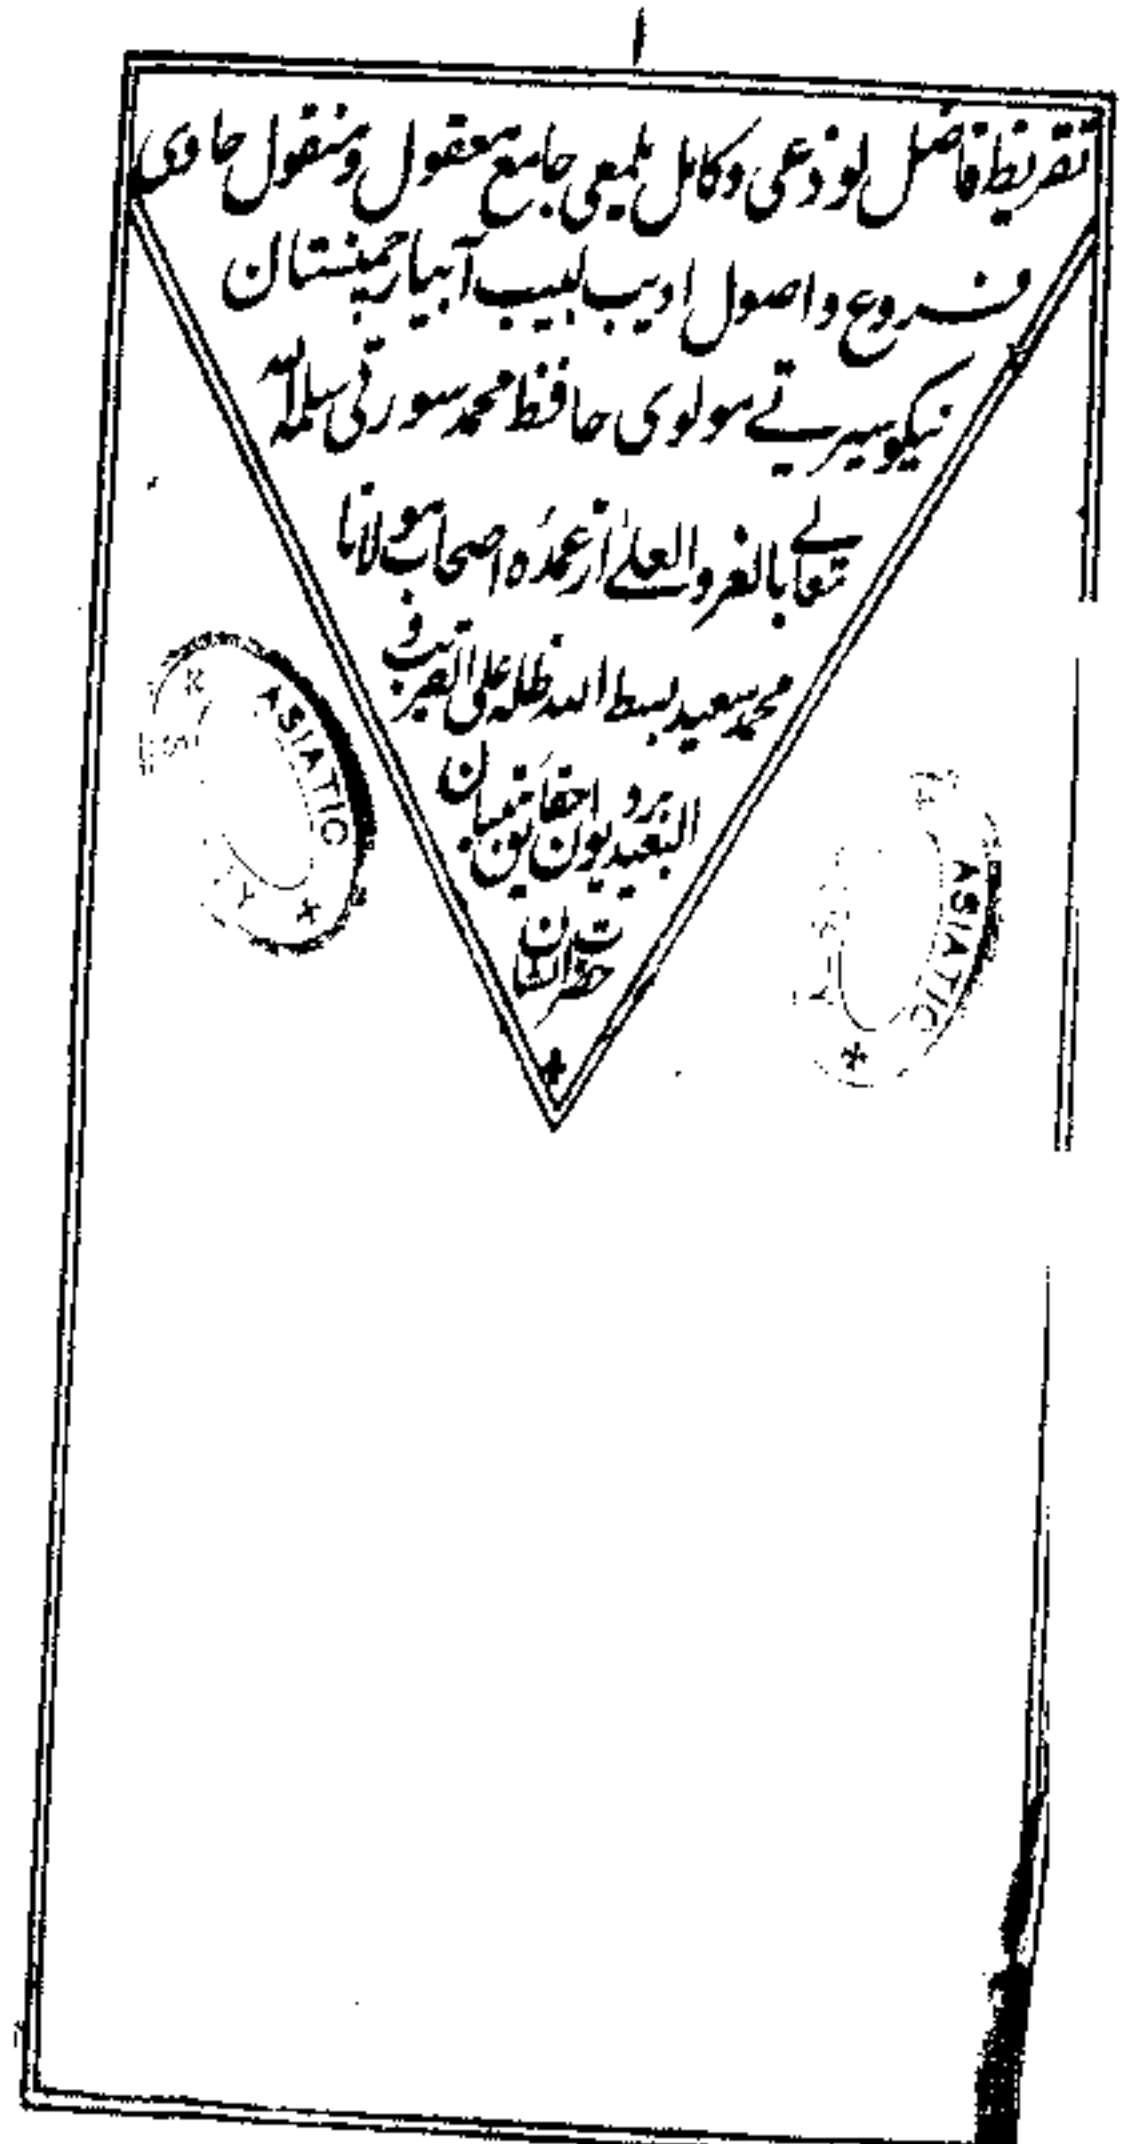 ۱
تقریظ فاضل لوذعی و کامل یلمعی جامع معقول و منقول حاوی
فروع و اصول ادیب لبیب آبیار چمنستان
نیکو سیرتے مولوی حافظ محمد سورتی سلمہ اللہ
تعالےٰ بالغر والعلےٰ از عمدہ اصحاب مولانا
محمد سعید بسط اللہ ظلہ علی القریب و
البعید
حضرت الشان
ASIATIC
ASIATIC